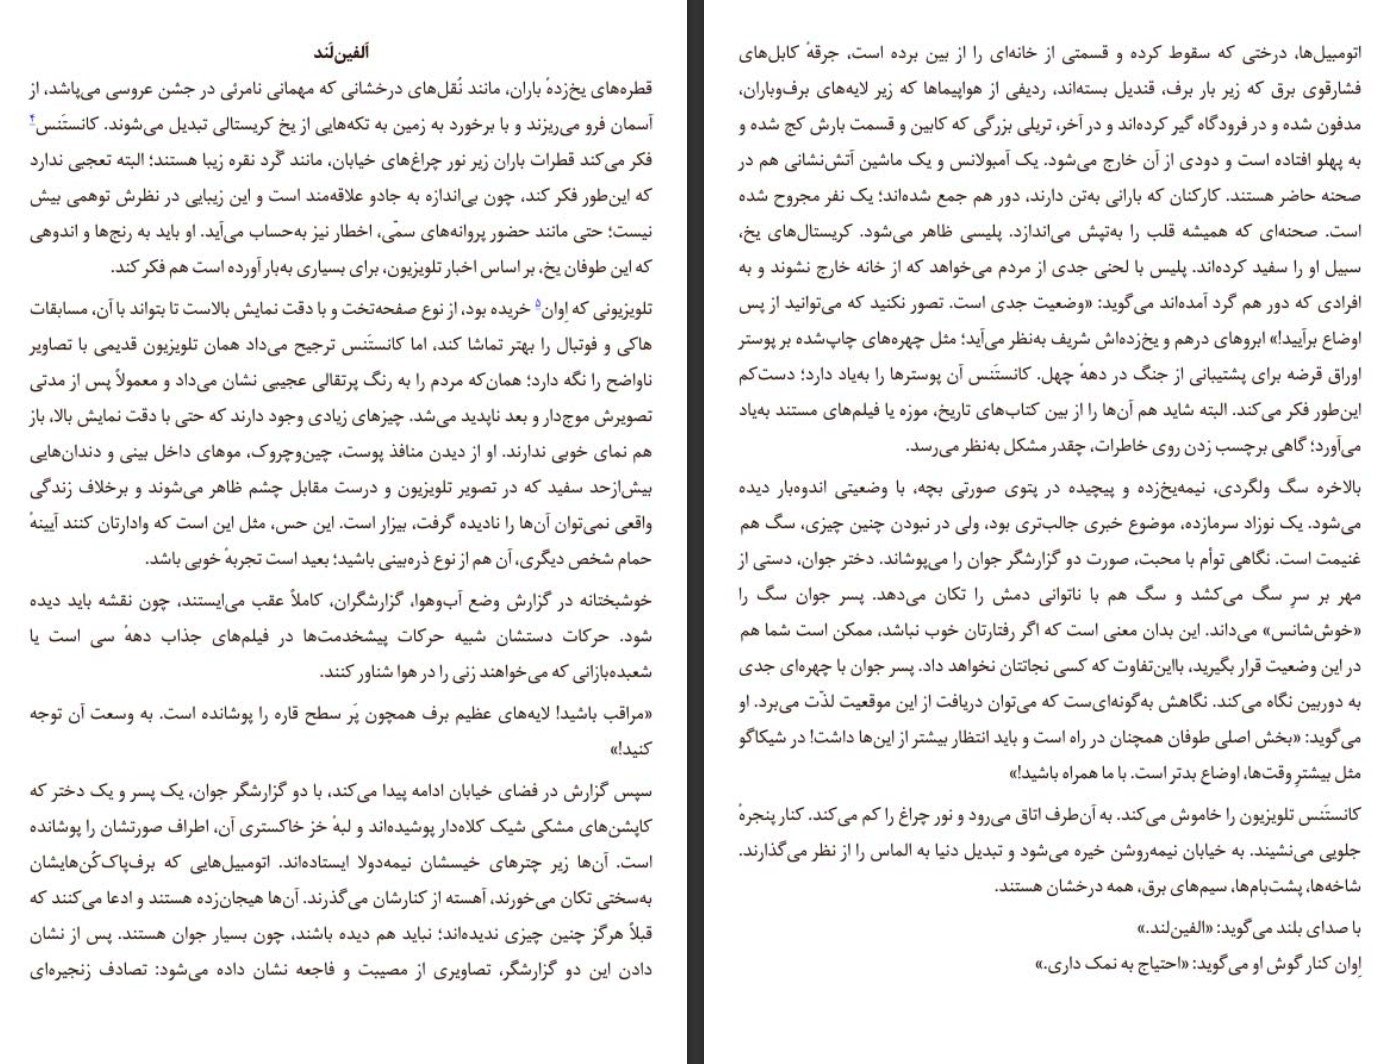 اَلفین‌لَند
قطره‌های یخ‌زدهٔ باران، مانند نُقل‌های درخشانی که مهمانی نامرئی در جشن عروسی می‌پاشد، از
آسمان فرو می‌ریزند و با برخورد به زمین به تکه‌هایی از یخ کریستالی تبدیل می‌شوند. کانستَنس۴
فکر می‌کند قطرات باران زیر نور چراغ‌های خیابان، مانند گَرد نقره زیبا هستند؛ البته تعجبی ندارد
که این‌طور فکر کند، چون بی‌اندازه به جادو علاقه‌مند است و این زیبایی در نظرش توهمی بیش
نیست؛ حتی مانند حضور پروانه‌های سمّی، اخطار نیز به‌حساب می‌آید. او باید به رنج‌ها و اندوهی
که این طوفان یخ، بر اساس اخبار تلویزیون، برای بسیاری به‌بار آورده است هم فکر کند.
تلویزیونی که اِوان۵ خریده بود، از نوع صفحه‌تخت و با دقت نمایش بالاست تا بتواند با آن، مسابقات
هاکی و فوتبال را بهتر تماشا کند، اما کانستَنس ترجیح می‌داد همان تلویزیون قدیمی با تصاویر
ناواضح را نگه دارد؛ همان‌که مردم را به رنگ پرتقالی عجیبی نشان می‌داد و معمولاً پس از مدتی
تصویرش موج‌دار و بعد ناپدید می‌شد. چیزهای زیادی وجود دارند که حتی با دقت نمایش بالا، باز
هم نمای خوبی ندارند. او از دیدن منافذ پوست، چین‌وچروک، موهای داخل بینی و دندان‌هایی
بیش‌ازحد سفید که در تصویر تلویزیون و درست مقابل چشم ظاهر می‌شوند و برخلاف زندگی
واقعی نمی‌توان آن‌ها را نادیده گرفت، بیزار است. این حس، مثل این است که وادارتان کنند آیینهٔ
حمام شخص دیگری، آن هم از نوع ذره‌بینی باشید؛ بعید است تجربهٔ خوبی باشد.
خوشبختانه در گزارش وضع آب‌وهوا، گزارشگران، کاملاً عقب می‌ایستند، چون نقشه باید دیده
شود. حرکات دستشان شبیه حرکات پیشخدمت‌ها در فیلم‌های جذاب دههٔ سی است یا
شعبده‌بازانی که می‌خواهند زنی را در هوا شناور کنند.
«مراقب باشید! لایه‌های عظیم برف همچون پَر سطح قاره را پوشانده است. به وسعت آن توجه
کنید!»
سپس گزارش در فضای خیابان ادامه پیدا می‌کند، با دو گزارشگر جوان، یک پسر و یک دختر که
کاپشن‌های مشکی شیک کلاه‌دار پوشیده‌اند و لبهٔ خز خاکستری آن، اطراف صورتشان را پوشانده
است. آن‌ها زیر چترهای خیسشان نیمه‌دولا ایستاده‌اند. اتومبیل‌هایی که برف‌پاک‌کُن‌هایشان
به‌سختی تکان می‌خورند، آهسته از کنارشان می‌گذرند. آن‌ها هیجان‌زده هستند و ادعا می‌کنند که
قبلاً هرگز چنین چیزی ندیده‌اند؛ نباید هم دیده باشند، چون بسیار جوان هستند. پس از نشان
دادن این دو گزارشگر، تصاویری از مصیبت و فاجعه نشان داده می‌شود: تصادف زنجیره‌ای
اتومبیل‌ها، درختی که سقوط کرده و قسمتی از خانه‌ای را از بین برده است، جرقهٔ کابل‌های
فشارقوی برق که زیر بار برف، قندیل بسته‌اند، ردیفی از هواپیماها که زیر لایه‌های برف‌وباران،
مدفون شده و در فرودگاه گیر کرده‌اند و در آخر، تریلی بزرگی که کابین و قسمت بارش کج شده و
به پهلو افتاده است و دودی از آن خارج می‌شود. یک آمبولانس و یک ماشین آتش‌نشانی هم در
صحنه حاضر هستند. کارکنان که بارانی به‌تن دارند، دور هم جمع شده‌اند؛ یک نفر مجروح شده
است. صحنه‌ای که همیشه قلب را به‌تپش می‌اندازد. پلیسی ظاهر می‌شود. کریستال‌های یخ،
سبیل او را سفید کرده‌اند. پلیس با لحنی جدی از مردم می‌خواهد که از خانه خارج نشوند و به
افرادی که دور هم گرد آمده‌اند می‌گوید: «وضعیت جدی است. تصور نکنید که می‌توانید از پس
اوضاع برآیید!» ابروهای درهم و یخ‌زده‌اش شریف به‌نظر می‌آید؛ مثل چهره‌های چاپ‌شده بر پوستر
اوراق قرضه برای پشتیبانی از جنگ در دههٔ چهل. کانستَنس آن پوسترها را به‌یاد دارد؛ دست‌کم
این‌طور فکر می‌کند. البته شاید هم آن‌ها را از بین کتاب‌های تاریخ، موزه یا فیلم‌های مستند به‌یاد
می‌آورد؛ گاهی برچسب زدن روی خاطرات، چقدر مشکل به‌نظر می‌رسد.
بالاخره سگ ولگردی، نیمه‌یخ‌زده و پیچیده در پتوی صورتی بچه، با وضعیتی اندوه‌بار دیده
می‌شود. یک نوزاد سرمازده، موضوع خبری جالب‌تری بود، ولی در نبودن چنین چیزی، سگ هم
غنیمت است. نگاهی توأم با محبت، صورت دو گزارشگر جوان را می‌پوشاند. دختر جوان، دستی از
مهر بر سرِ سگ می‌کشد و سگ هم با ناتوانی دمش را تکان می‌دهد. پسر جوان سگ را
«خوش‌شانس» می‌داند. این بدان معنی است که اگر رفتارتان خوب نباشد، ممکن است شما هم
در این وضعیت قرار بگیرید، بااین‌تفاوت که کسی نجاتتان نخواهد داد. پسر جوان با چهره‌ای جدی
به دوربین نگاه می‌کند. نگاهش به‌گونه‌ای‌ست که می‌توان دریافت از این موقعیت لذّت می‌برد. او
می‌گوید: «بخش اصلی طوفان همچنان در راه است و باید انتظار بیشتر از این‌ها داشت! در شیکاگو
مثل بیشترِ وقت‌ها، اوضاع بدتر است. با ما همراه باشید!»
کانستَنس تلویزیون را خاموش می‌کند. به آن‌طرف اتاق می‌رود و نور چراغ را کم می‌کند. کنار پنجرهٔ
جلویی می‌نشیند. به خیابان نیمه‌روشن خیره می‌شود و تبدیل دنیا به الماس را از نظر می‌گذارند.
شاخه‌ها، پشت‌بام‌ها، سیم‌های برق، همه درخشان هستند.
با صدای بلند می‌گوید: «الفین‌لند.»
اِوان کنار گوش او می‌گوید: «احتیاج به نمک داری.»